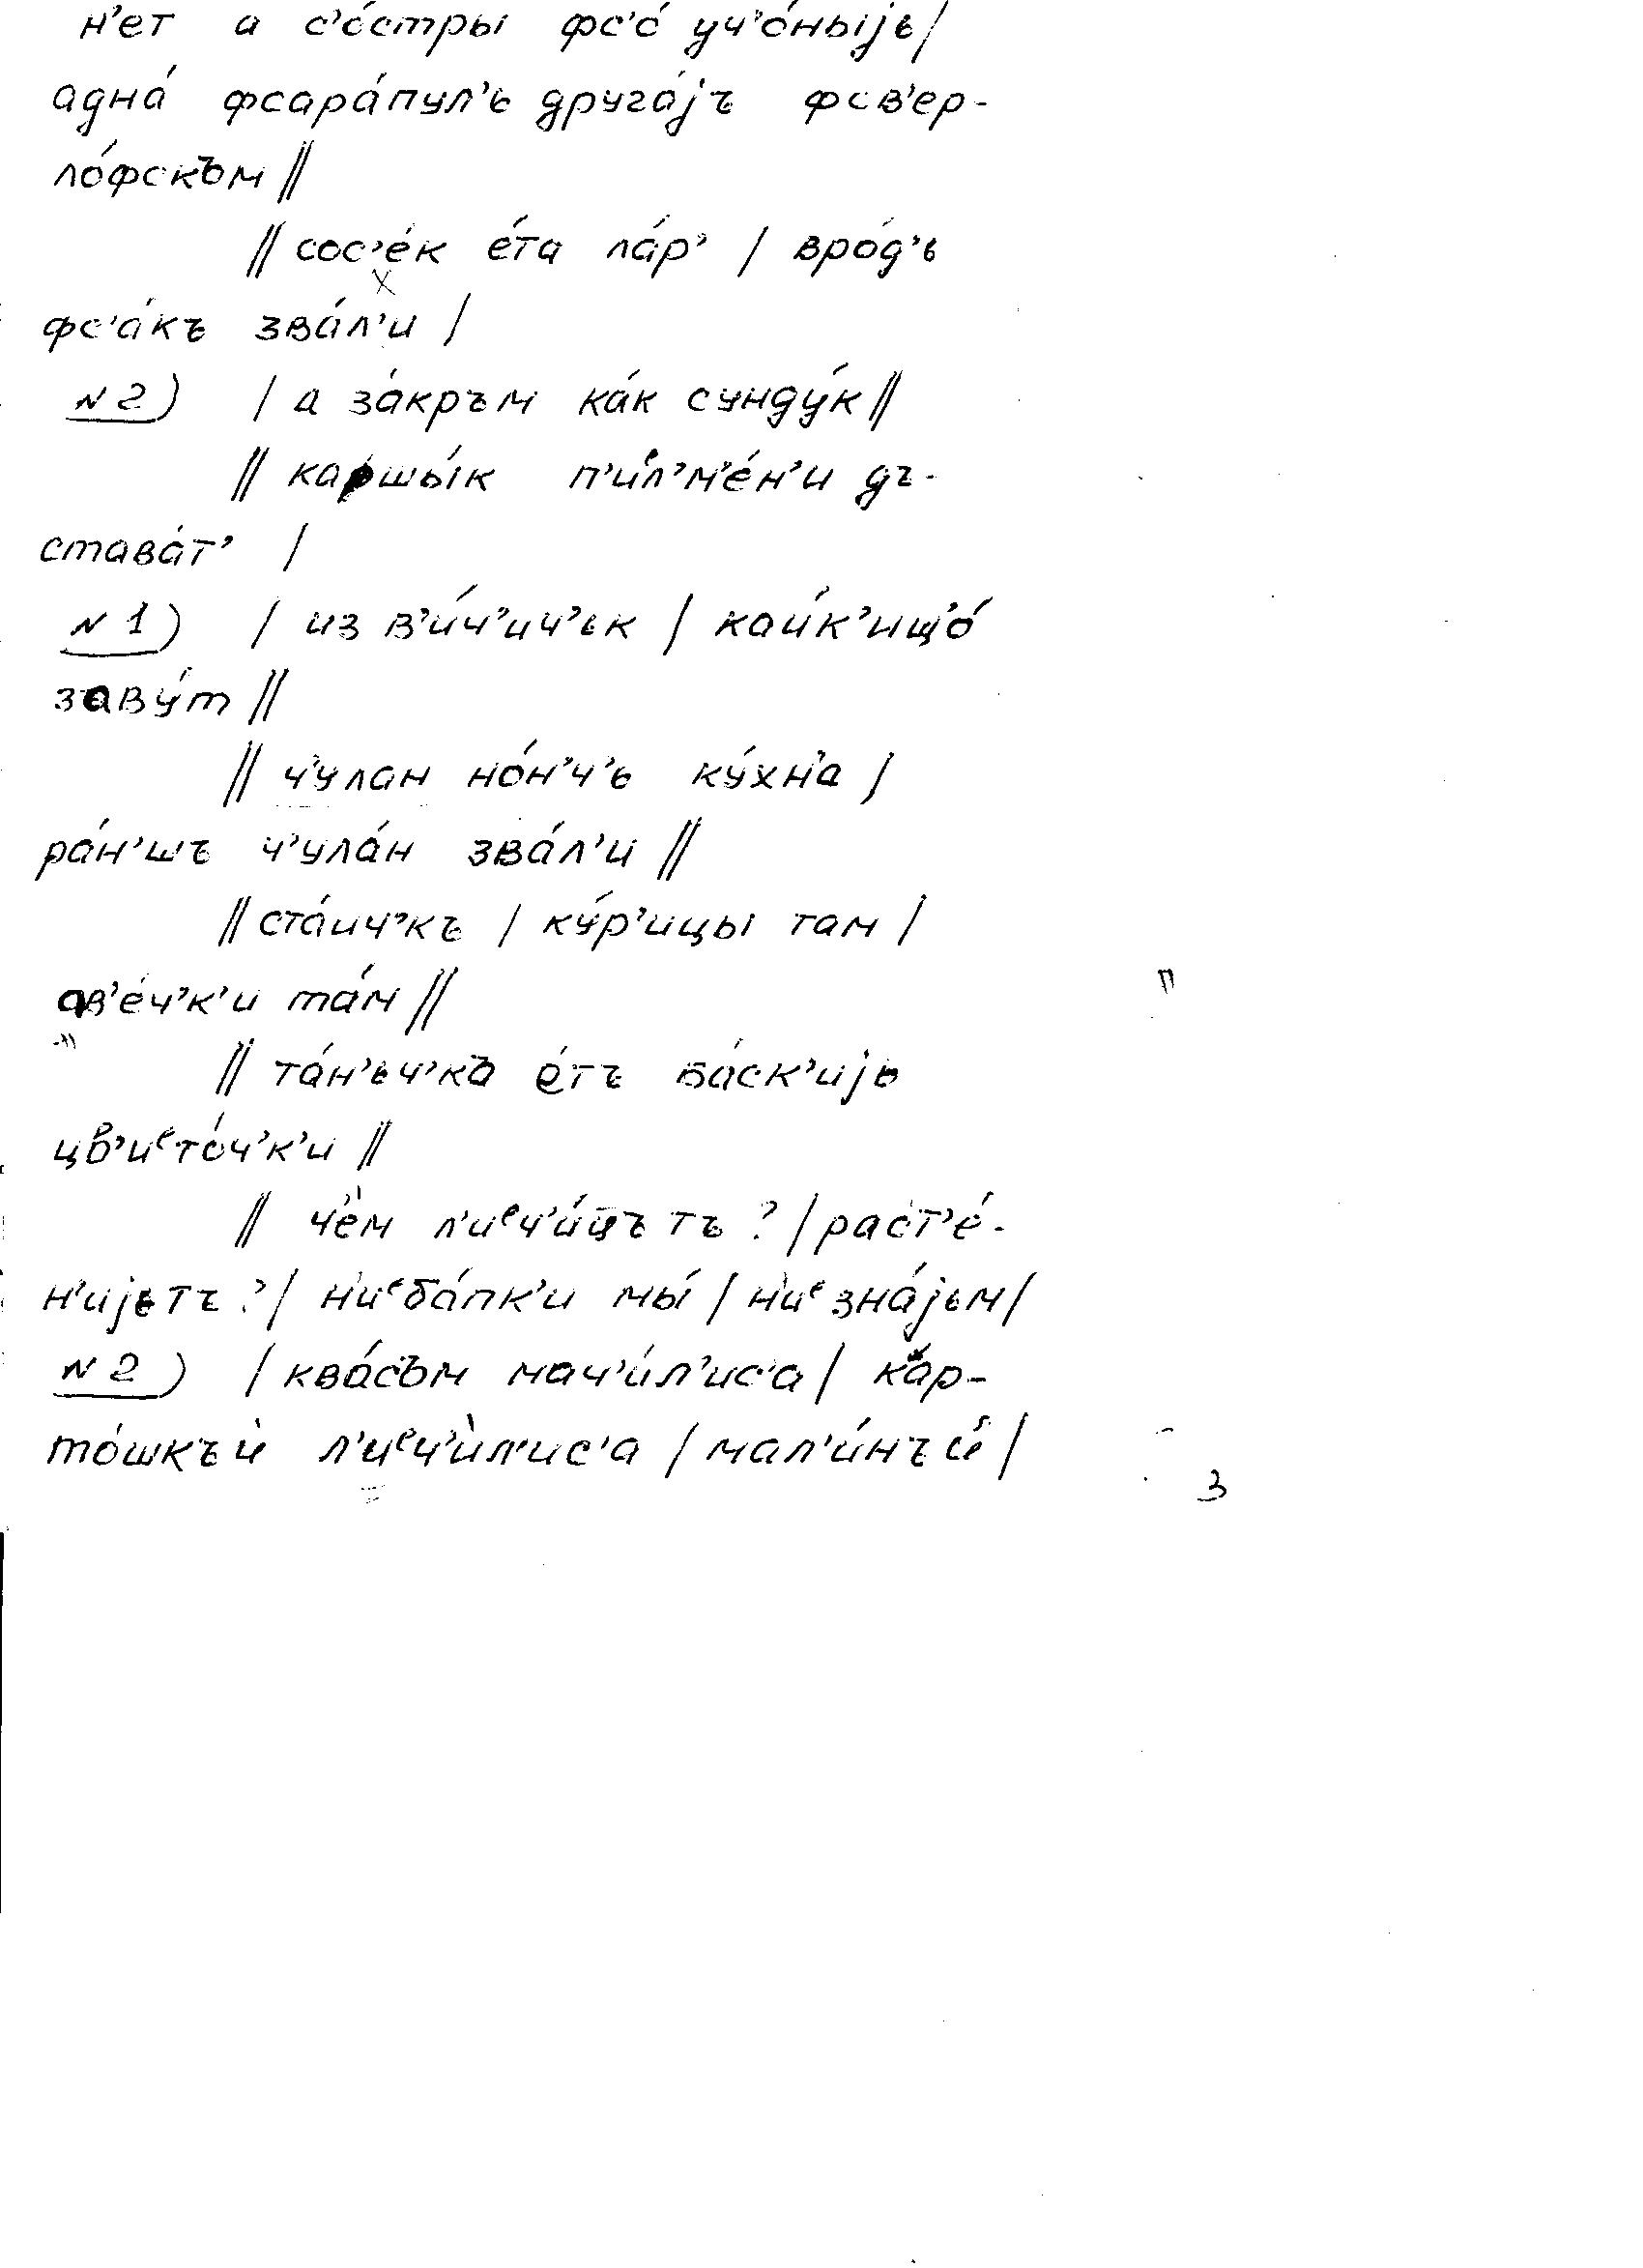 н'ет а с'о́стры фс'о́ уч'о́ныjь/
адна́ фсара́пул'ь друга́jъ фсв'ер-
ло́фскъм //
// сос'е́к е́та ла́р' / вро́д'ь
фс'а́къ зва́л'и /
N2) / а за́кръм ка́к сунду́к //
// каршы́к п'иᵉл'м'е́н'и дъ-
става́т' /
N1) / из в'и́ч'ич'ьк / каи́к'ищ'о́
заву́т //
// ч'улан но́н'ч'ь ку́хн'а /
ра́н'шъ ч'ула́н зва́л'и //
// ста́ич'къ / ку́р'ицы там /
ав'е́ч'к'и та́м //
// та́н'ьч'ка е́тъ ба́ск'иjь
цв'иᵉто́ч'к'и //
// ч'е́м л'иᵉч'и́цъ тъ ? / раст'е́-
н'иjьтъ ? / н'иᵉба́пк'и мы́ / н'иᵉзна́jьм /
N2) / ква́съм мач'и́л'ис'а / кар-
то́шкъй л'иᵉч'и́л'ис'а / мал'и́нъй /
3